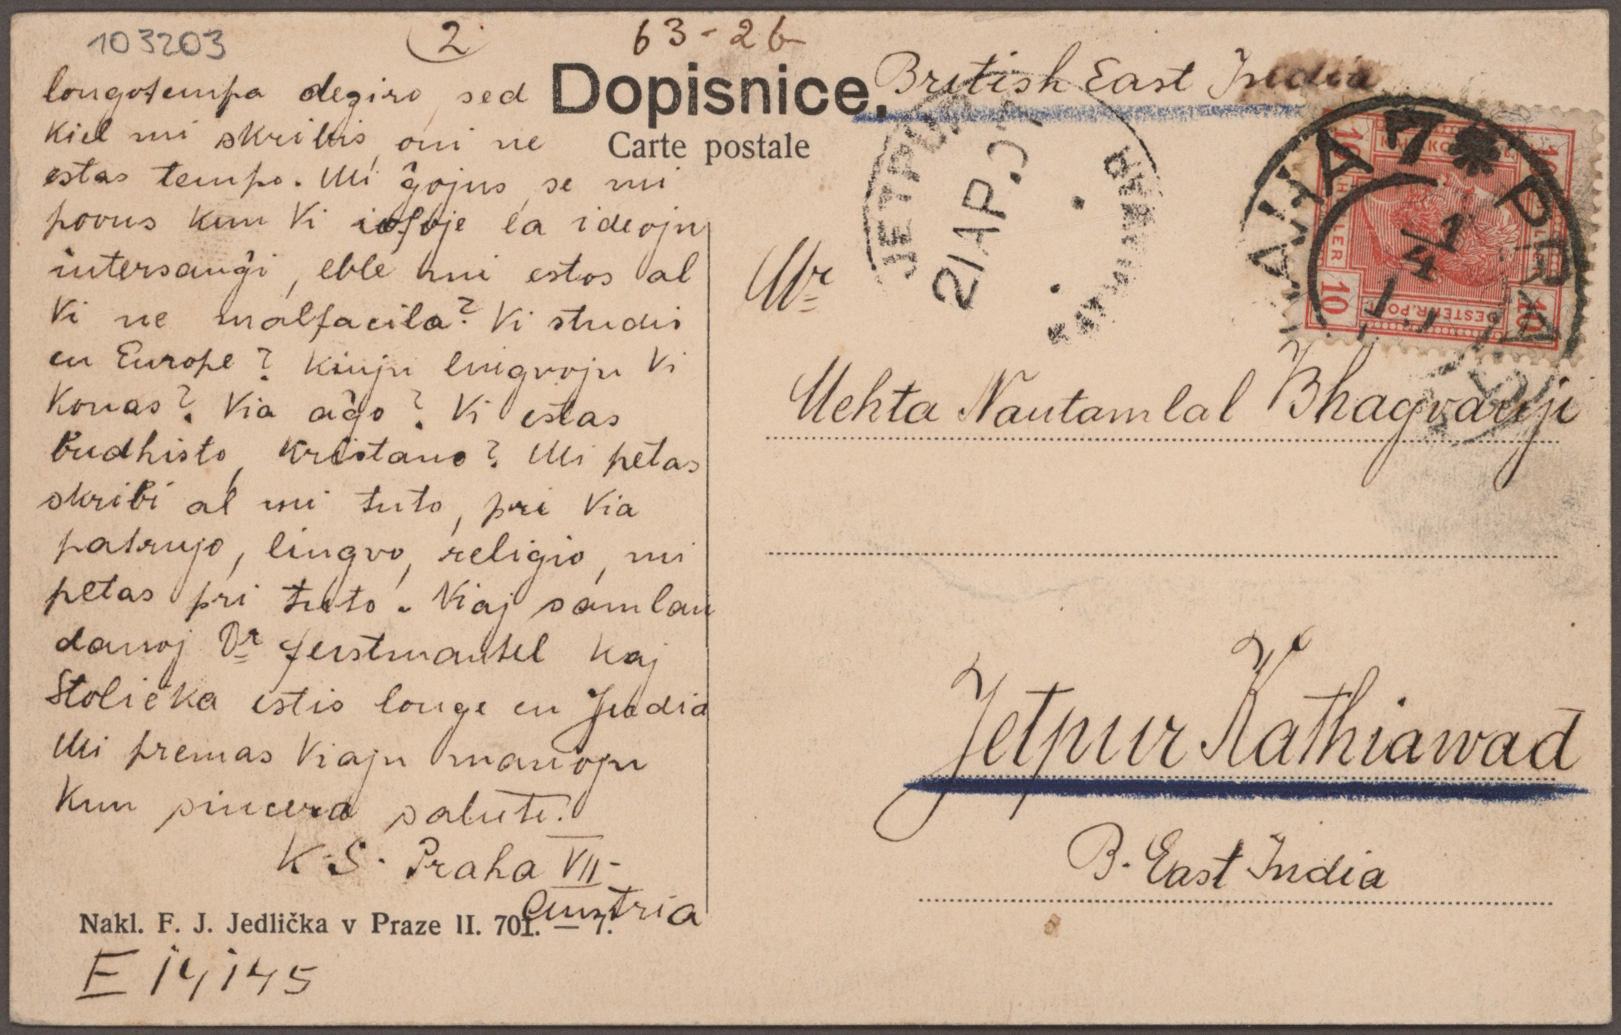 103203
2
63-26
longotempa deziro, sed
kiel mi skribis, oni ne
estas tempo. Mi ĝojus, se mi
povus kun Vi iofoje la ideojn
intersanĝi, eble mi estos al
Vi ne malfacila? Vi studis
en Europe? Kiujn lingvojn Vi
konas? Via aĝo? Vi estas
budhisto, kristano? Mi petas
skribi al mi tuto, pri Via
patrujo, lingvo, religio, mi
petas pri tuto. Viaj samlan
danoj Dr Feistmantel kaj
Stolička estis longe en India
Mi premas Viajn manojn
Kun sincera saluto.
K. S. Praha VII-
Austria
Nakl. F. J. Jedlička v Praze II. 701. — 7.
E 14145
Dopisnice.
Carte postale
British East India
JETPUR
21 AP.
KATHIAWAR
PRAHA 7 PRAHA
1/4
10
10
10
Mr
Mehta Nautamlal Bhagvanji
Jetpur Kathiawad
B. East India